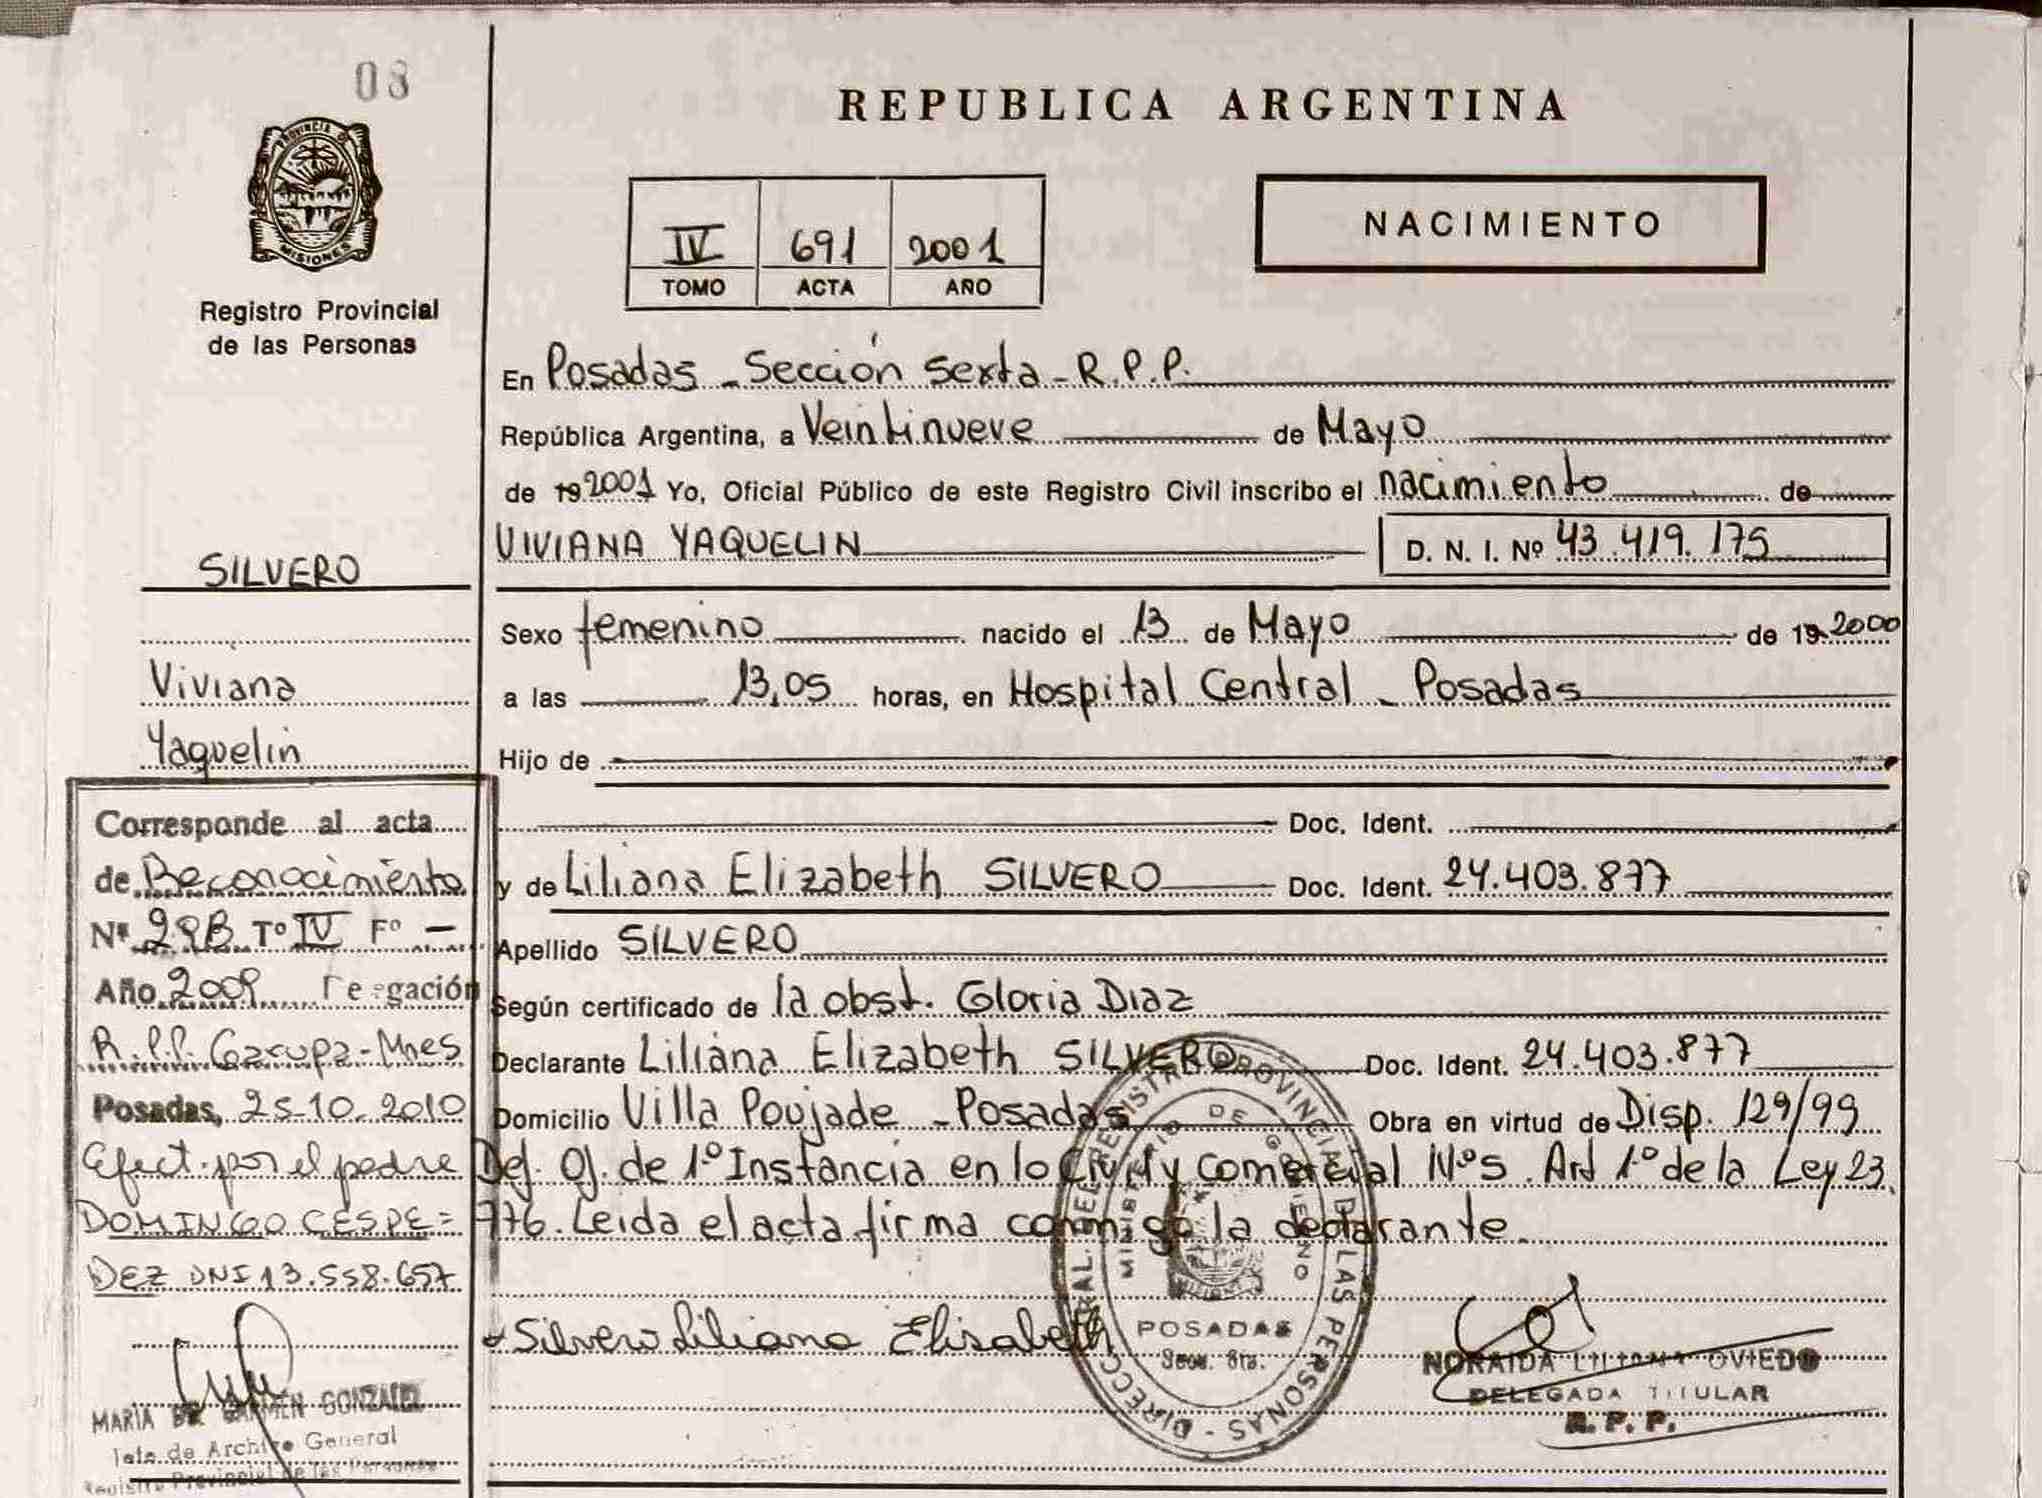 08
PROVINCIA DE
MISIONES
Registro Provincial
de las Personas
REPUBLICA ARGENTINA
IV 691 2001
TOMO ACTA AÑO
NACIMIENTO
En Posadas - Sección Sexta - R.P.P.
República Argentina, a Veintinueve de Mayo
de 19 2001 Yo, Oficial Público de este Registro Civil inscribo el nacimiento de
VIVIANA YAQUELIN D. N. I. Nº 43.419.175
Sexo femenino nacido el 13 de Mayo de 19 2000
a las 13,05 horas, en Hospital Central - Posadas
Hijo de
Doc. Ident.
y de Liliana Elizabeth SILVERO Doc. Ident. 24.403.877
Apellido SILVERO
Según certificado de la obst. Gloria Diaz
Declarante Liliana Elizabeth SILVERO Doc. Ident. 24.403.877
Domicilio Villa Poujade - Posadas Obra en virtud de Disp. 129/99
Def. Of. de 1º Instancia en lo Civil y Comercial Nº 5. Art 1º de la Ley 23.
776. Leida el acta firma conmigo la declarante.
Silvero Liliana Elisabeth
SILVERO
Viviana
Yaquelin
Corresponde al acta
de Reconocimiento
Nº 29B Tº IV Fº -
Año 2009
R.P.P. Garupa - Mnes
Posadas, 25-10-2010
Efect. por el padre
DOMINGO CESPE=
DEZ DNI 13.558.657
MARIA DEL CARMEN GONZALEZ
Jefe de Archivo General
Registro Provincial de las Personas
DIRECC RAL. DEL REGISTRO PROVINCIAL DE LAS PERSONAS
MINISTERIO DE GOBIERNO
POSADAS
Secc. 6ta.
NORAIDA LILIANA OVIEDO
DELEGADA TITULAR
R. P. P.